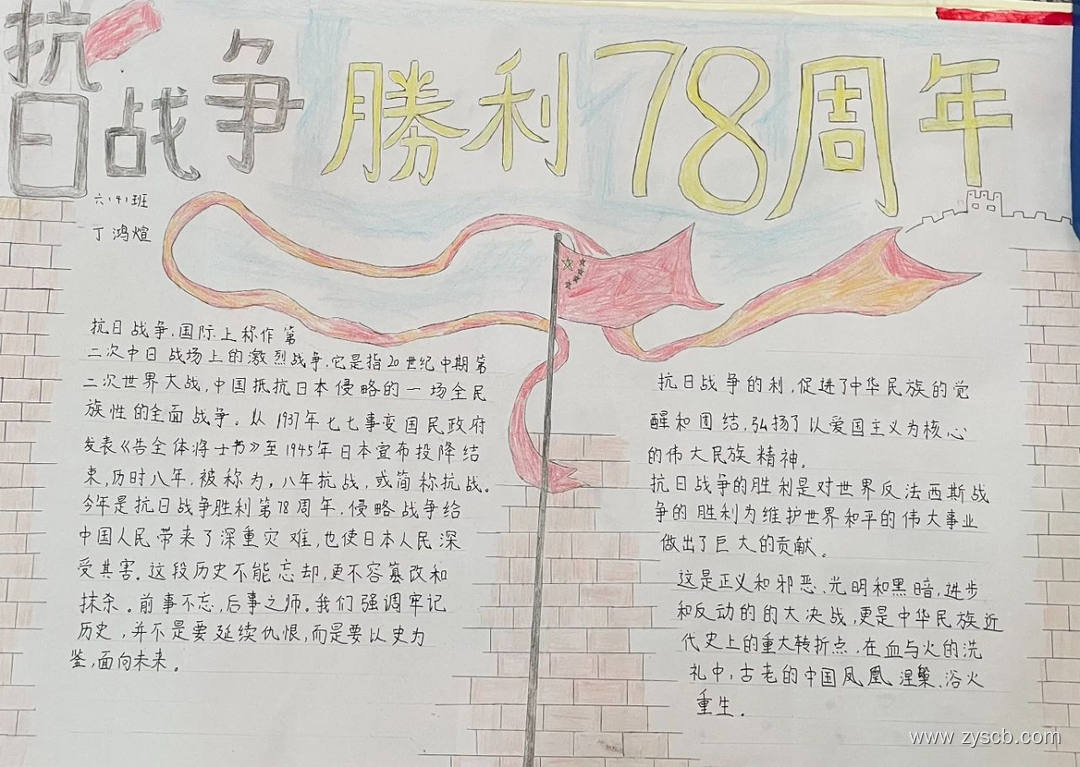 抗日战争勝利78周年
六(4)班
丁鸿煊
抗日战争,国际上称作第
二次中日战场上的激烈战争,它是指20世纪中期第
二次世界大战,中国抵抗日本侵略的一场全民
族性的全面战争。从1937年七七事变国民政府
发表《告全体将士书》至1945年日本宣布投降结
束,历时八年,被称为,八年抗战,或简称抗战。
今年是抗日战争胜利第78周年,侵略战争给
中国人民带来了深重灾难,也使日本人民深
受其害。这段历史不能忘却,更不容篡改和
抹杀。前事不忘,后事之师。我们强调牢记
历史,并不是要延续仇恨,而是要以史为
鉴,面向未来。
抗日战争的利,促进了中华民族的觉
醒和团结,弘扬了以爱国主义为核心
的伟大民族精神。
抗日战争的胜利是对世界反法西斯战
争的胜利为维护世界和平的伟大事业
做出了巨大的贡献。
这是正义和邪恶、光明和黑暗,进步
和反动的的大决战,更是中华民族近
代史上的重大转折点,在血与火的洗
礼中,古老的中国凤凰涅槃、浴火
重生。
www.zyscb.com